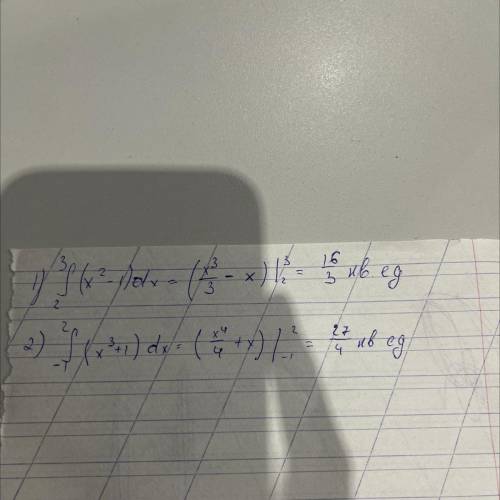 1) ∫₂³ (x² - 1) dx = (x³/3 - x) |₂³ = 16/3 кв ед
2) ∫₋₁² (x³ + 1) dx = (x⁴/4 + x) |₋₁² = 27/4 кв ед